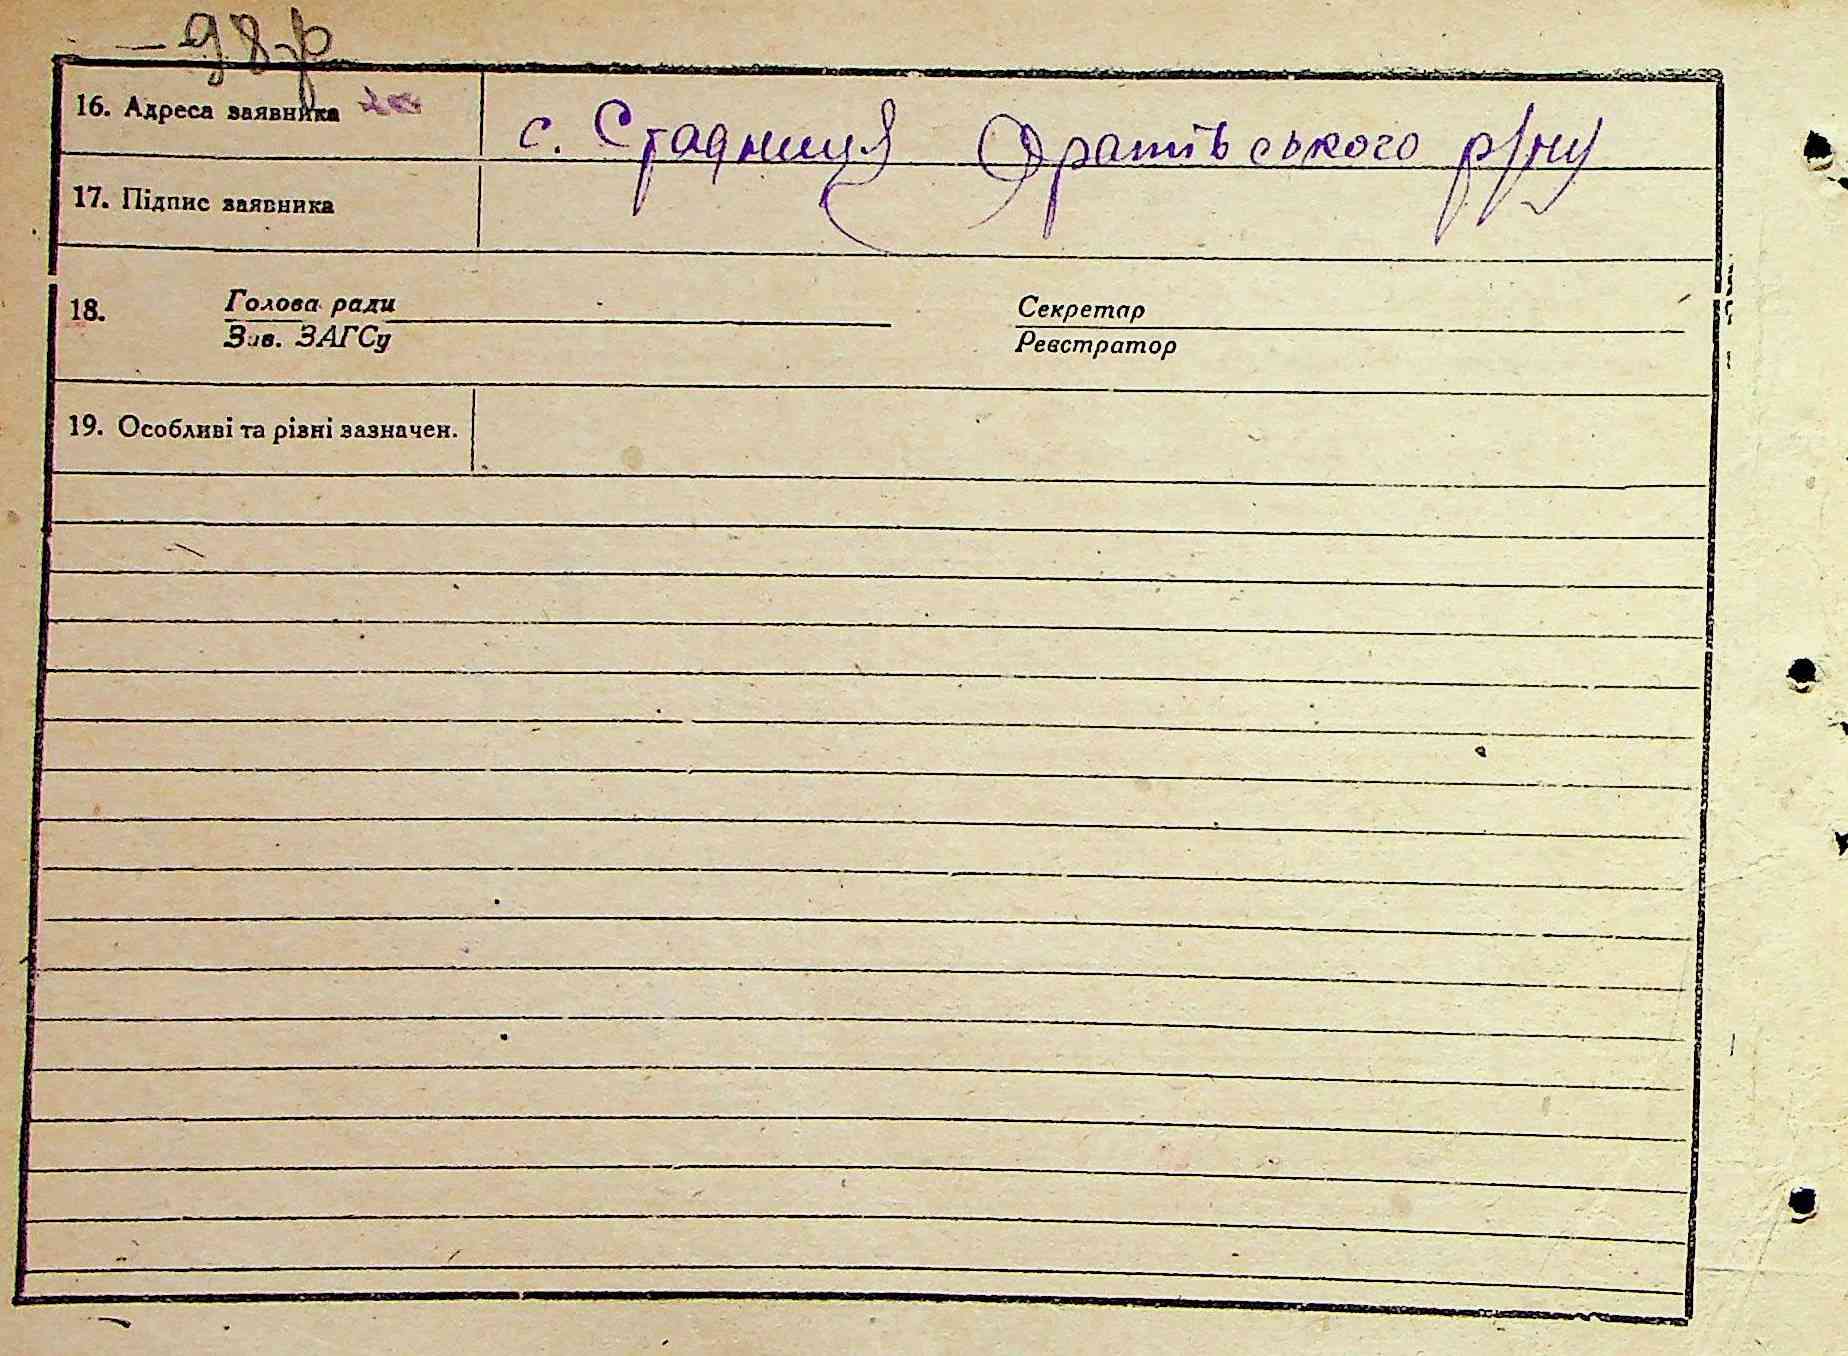 -98-р
16. Адреса заявника с. Стадниця Оратівського р/ну
17. Підпис заявника
18. Голова ради Секретар
Зав. ЗАГСу Реєстратор
19. Особливі та різні зазначен.